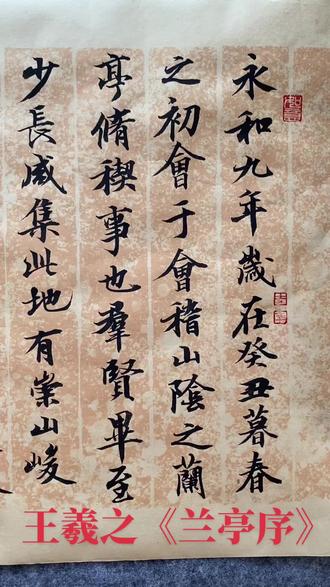 永和九年歲在癸丑暮春
之初會于會稽山陰之蘭
亭脩稧事也羣賢畢至
少長咸集此地有崇山峻
王羲之《兰亭序》